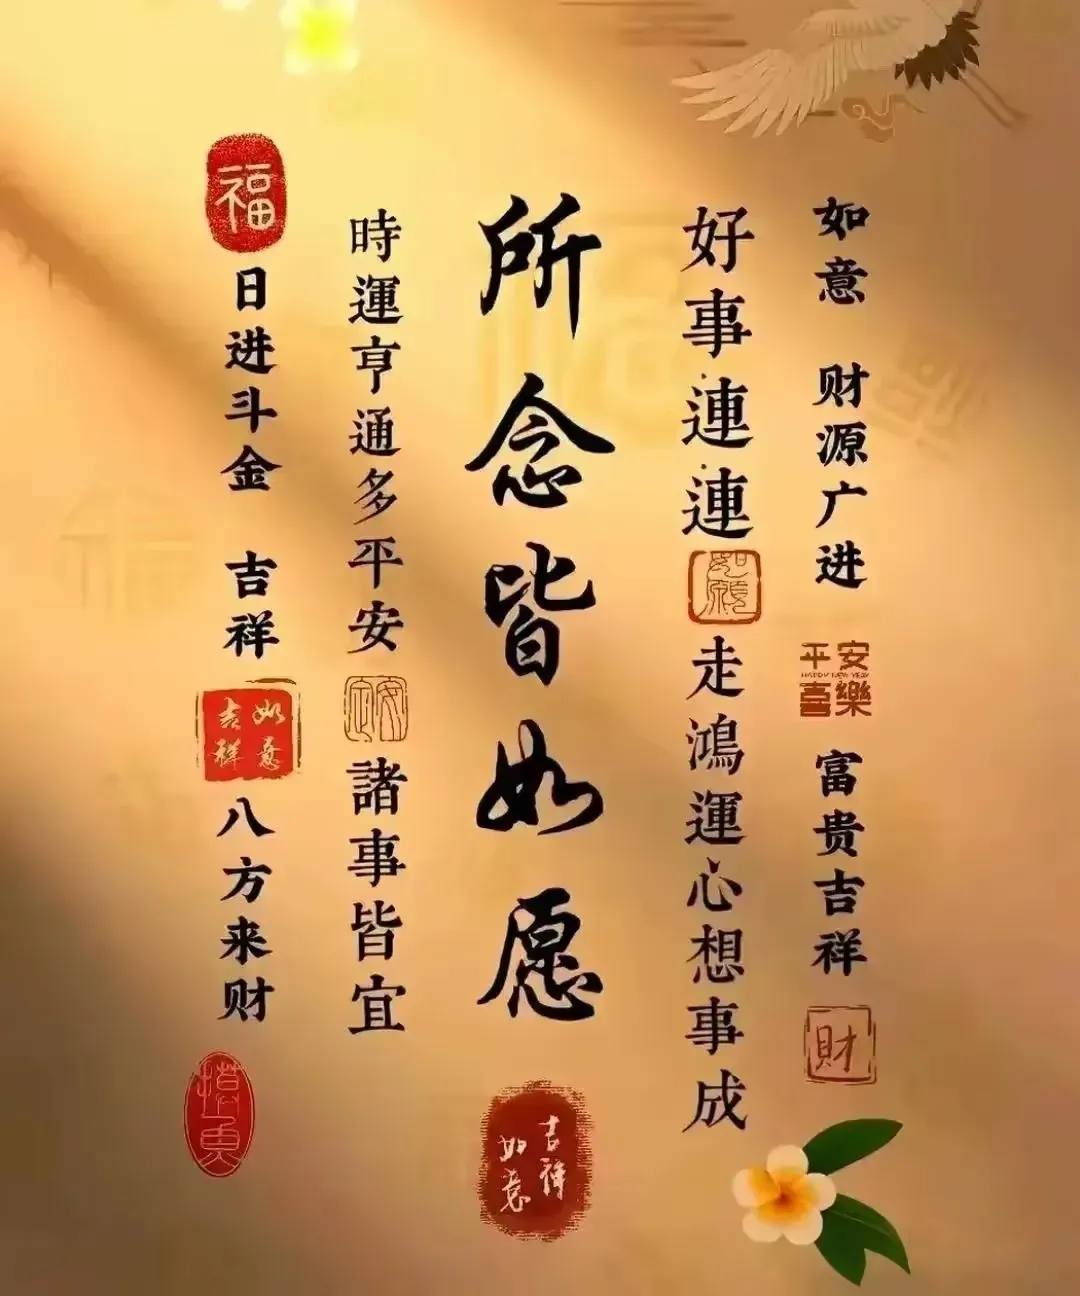 如意 财源广进
平安
HAPPY NEW YEAR
喜樂
富贵吉祥
財
好事連連
如願
走鴻運心想事成
所念皆如愿
吉祥
如意
時運亨通多平安
安定
諸事皆宜
福
日进斗金 吉祥
如意
吉祥
八方来财